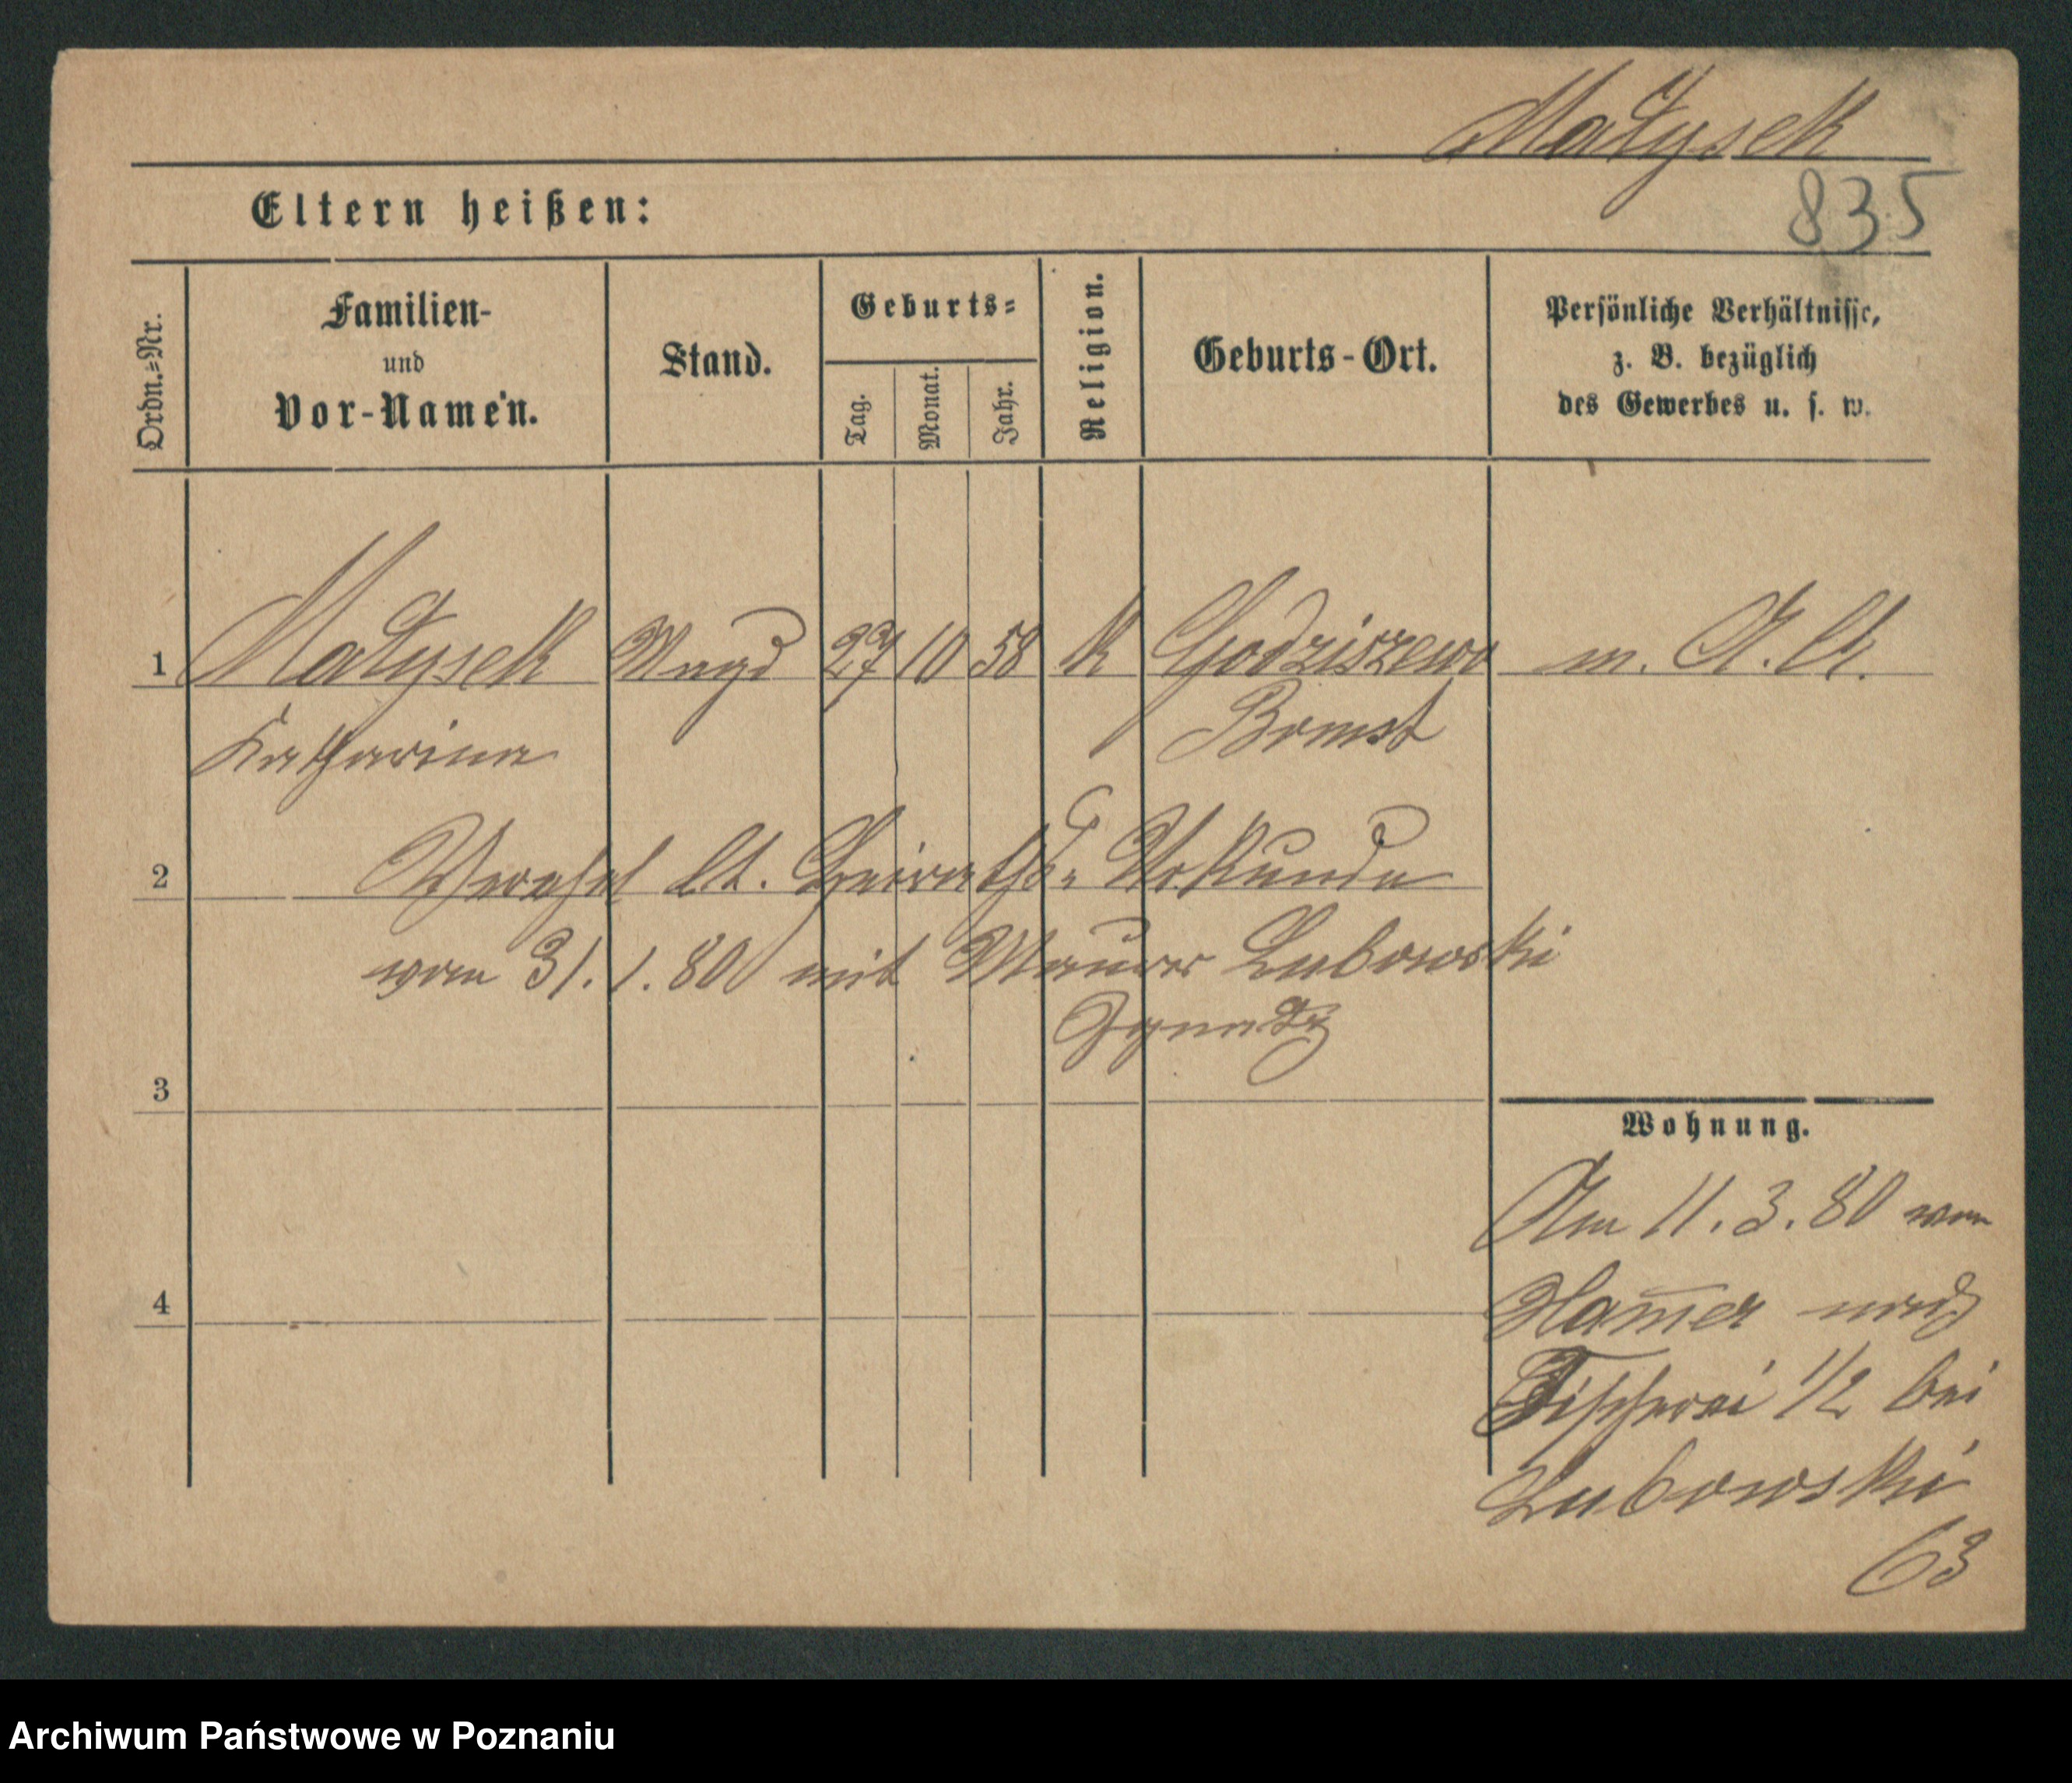 Matysek
835
Eltern heißen:
Ordn.=Nr.
Familien-
und
Vor-Namen.
Stand.
Geburts=
Tag.
Monat.
Jahr.
Religion.
Geburts-Ort.
Persönliche Verhältnisse,
z. B. bezüglich
des Gewerbes u. s. w.
1 Matysek Magd 27 10 58 k Godziszewo m. A. Ct.
Katharina Bomst
2 Verehel. lt. Heiraths= Urkunde
vom 31.1.80 mit Maurer Lubowski
Ignatz
3
Wohnung.
Am 11.3.80 von
Ham̄er nach
4
Fischerei 1/2 bei
Lubowski
63
Archiwum Państwowe w Poznaniu